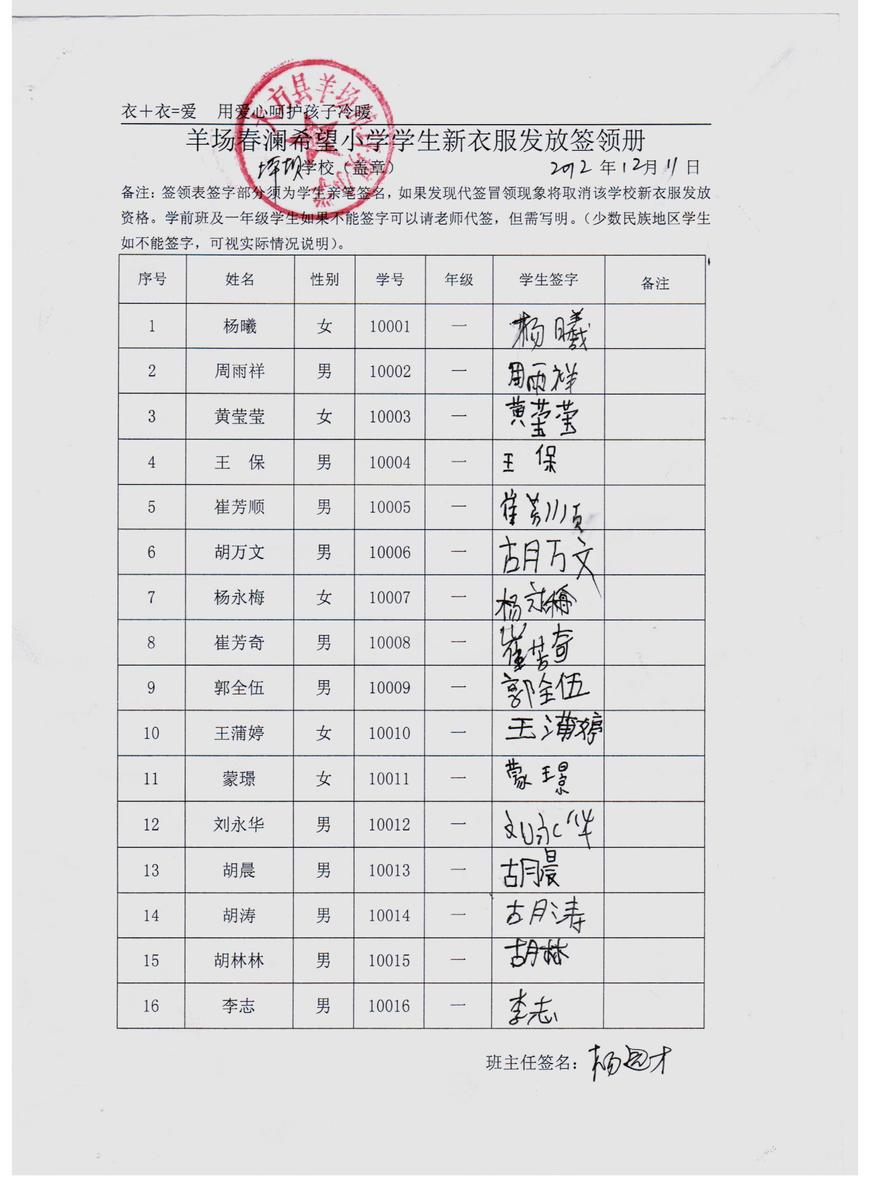 衣+衣=爱 用爱心呵护孩子冷暖
羊场春澜希望小学学生新衣服发放签领册
坪坝学校（盖章） 2012 年 12 月 11 日
备注：签领表签字部分须为学生亲笔签名，如果发现代签冒领现象将取消该学校新衣服发放
资格。学前班及一年级学生如果不能签字可以请老师代签，但需写明。（少数民族地区学生
如不能签字，可视实际情况说明）。
序号 姓名 性别 学号 年级 学生签字 备注
1 杨曦 女 10001 一 杨曦
2 周雨祥 男 10002 一 周雨祥
3 黄莹莹 女 10003 一 黄莹莹
4 王 保 男 10004 一 王 保
5 崔芳顺 男 10005 一 崔芳顺
6 胡万文 男 10006 一 胡万文
7 杨永梅 女 10007 一 杨永梅
8 崔芳奇 男 10008 一 崔芳奇
9 郭全伍 男 10009 一 郭全伍
10 王蒲婷 女 10010 一 王蒲婷
11 蒙璟 女 10011 一 蒙璟
12 刘永华 男 10012 一 刘永华
13 胡晨 男 10013 一 胡晨
14 胡涛 男 10014 一 胡涛
15 胡林林 男 10015 一 胡林
16 李志 男 10016 一 李志
班主任签名：杨 才